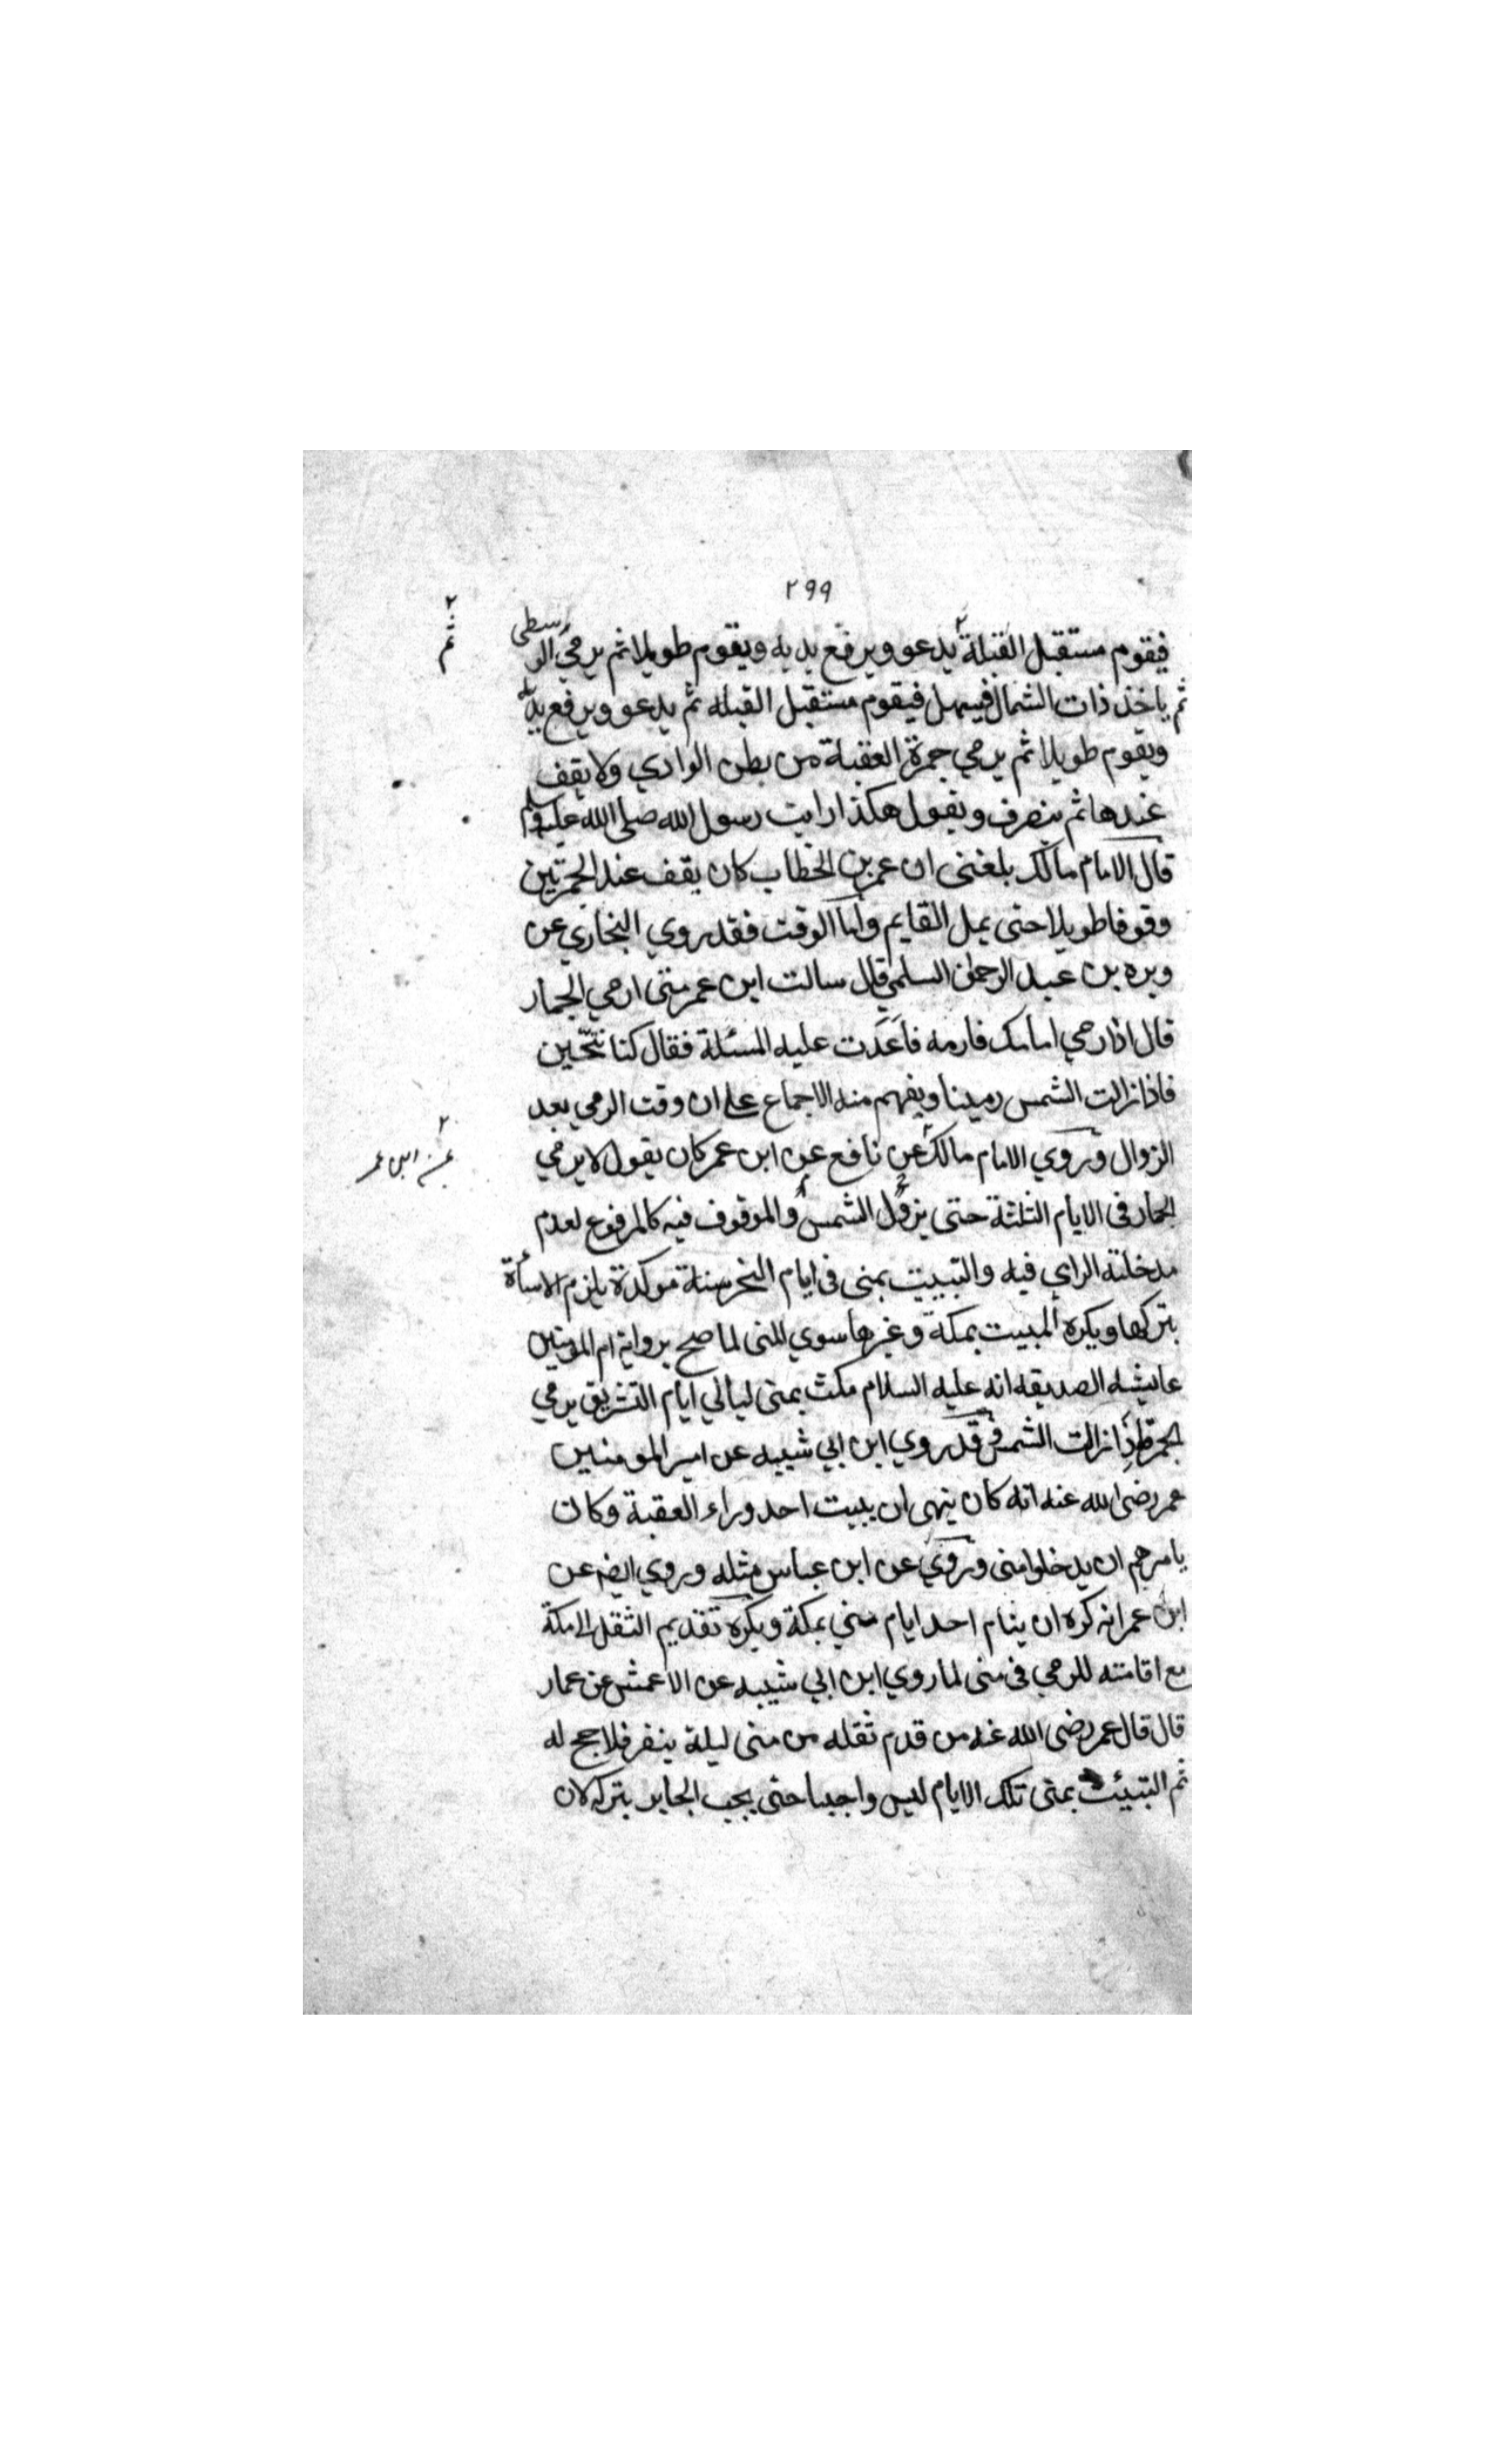 ٢٩٩
فيقوم مستقبل القبلة يدعو ويرفع يديه ويقوم طويلا ثم يرمي الوسطى
ثم ياخذ ذات الشمال فيسهل فيقوم مستقبل القبله ثم يدعو ويرفع يديه
ويقوم طويلا ثم يرمي جمرة العقبة من بطن الوادي ولا يقف
عندها ثم ينصرف ويقول هكذا رايت رسول الله صلى الله عليه وسلم
قال الامام مالك بلغنى ان عمر بن الخطاب كان يقف عند الجمرتين
وقوفا طويلا حتى يمل القايم واما الوقت فقد روي البخاري عن
وبره بن عبد الرحمن السلمي قال سالت ابن عمر متى ارمي الجمار
قال اذا رمي امامك فارمه فاعدت عليه المسئلة فقال كنا نتحين
فاذا زالت الشمس رمينا ويفهم منه الاجماع على ان وقت الرمي بعد
الزوال وروي الامام مالك عن نافع عن ابن عمر كان يقول لا يرمي
الجمار فى الايام الثلثة حتى يزول الشمس والموقوف فيه كالمرفوع لعدم
مدخلته الراي فيه والتبييت بمنى فى ايام النحر سنة موكدة يلزم الاسأة
بتركها ويكره المبيت بمكة وغيرها سوي المنى لما صح برواية ام المومنين
عايشه الصديقه انه عليه السلام مكث بمنى ليالي ايام التشريق يرمي
الجمرة اذا زالت الشمس وقد روي ابن ابي شيبه عن امير المومنين
عمر رضى الله عنه انه كان ينهى ان يبيت احد وراء العقبة وكان
يامرهم ان يدخلوا منى وروي عن ابن عباس مثله وروي ايضا عن
ابن عمر انه كره ان ينام احد ايام مني بمكة ويكره تقديم الثقل الا مكة
مع اقامته للرمي فى منى لما روي ابن ابي شيبه عن الاعمش عن عمار
قال قال عمر رضى الله عنه من قدم ثقله من منى ليلة ينفر فلا حج له
ثم التبيئت بمنى تلك الايام ليس واجبا حتى يجب الجابر بتركه لان
٢
ثم
٢
عن ابن عمر